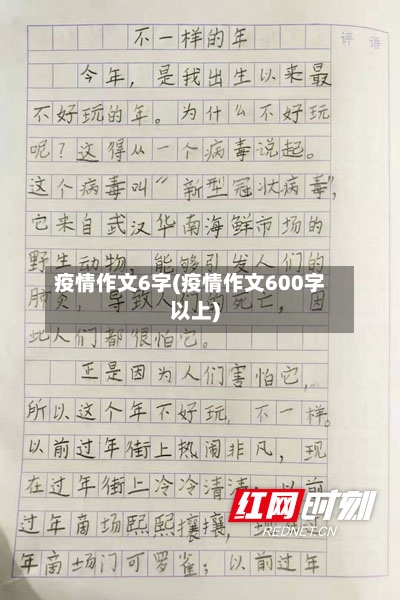 不一样的年
评 语
今年，是我出生以来最
不好玩的年。为什么不好玩
呢？这得从一个病毒说起。
这个病毒叫“新型冠状病毒”，
它来自武汉华南海鲜市场的
野生动物，能够引发人们的
疫情作文6字(疫情作文600字
以上)
肺炎，导致人们的死亡，因
此人们都很怕它。
正是因为人们害怕它，
所以这个年不好玩，不一样。
以前过年街上热闹非凡，现
在过年街上冷冷清清；以前
过年商场熙熙攘攘，
年商场门可罗雀；以前过年
红网时刻
REDNET.CN